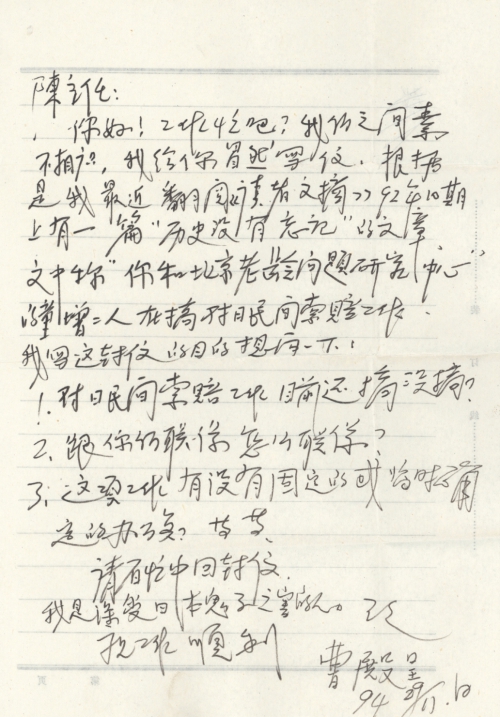 陳主任:
你好!工作忙吧?我们之间素
不相识,我给你冒然写信,根据
是我最近翻阅《读者文摘》92年10期
上有一篇“历史没有忘记”的文章
文中称“你和北京老龄问题研究中心”
的童增二人在搞对日民间索赔工作.
我写这封信的目的想问一下:
1.对日民间索赔工作目前还搞没搞?
2.跟你们联係怎么联係?
3.这项工作有没有固定的或临时
定的办
请百忙中回封信.
我是深受日本鬼子之害的人。
祝工作顺利
曹殿
94 29/11.日